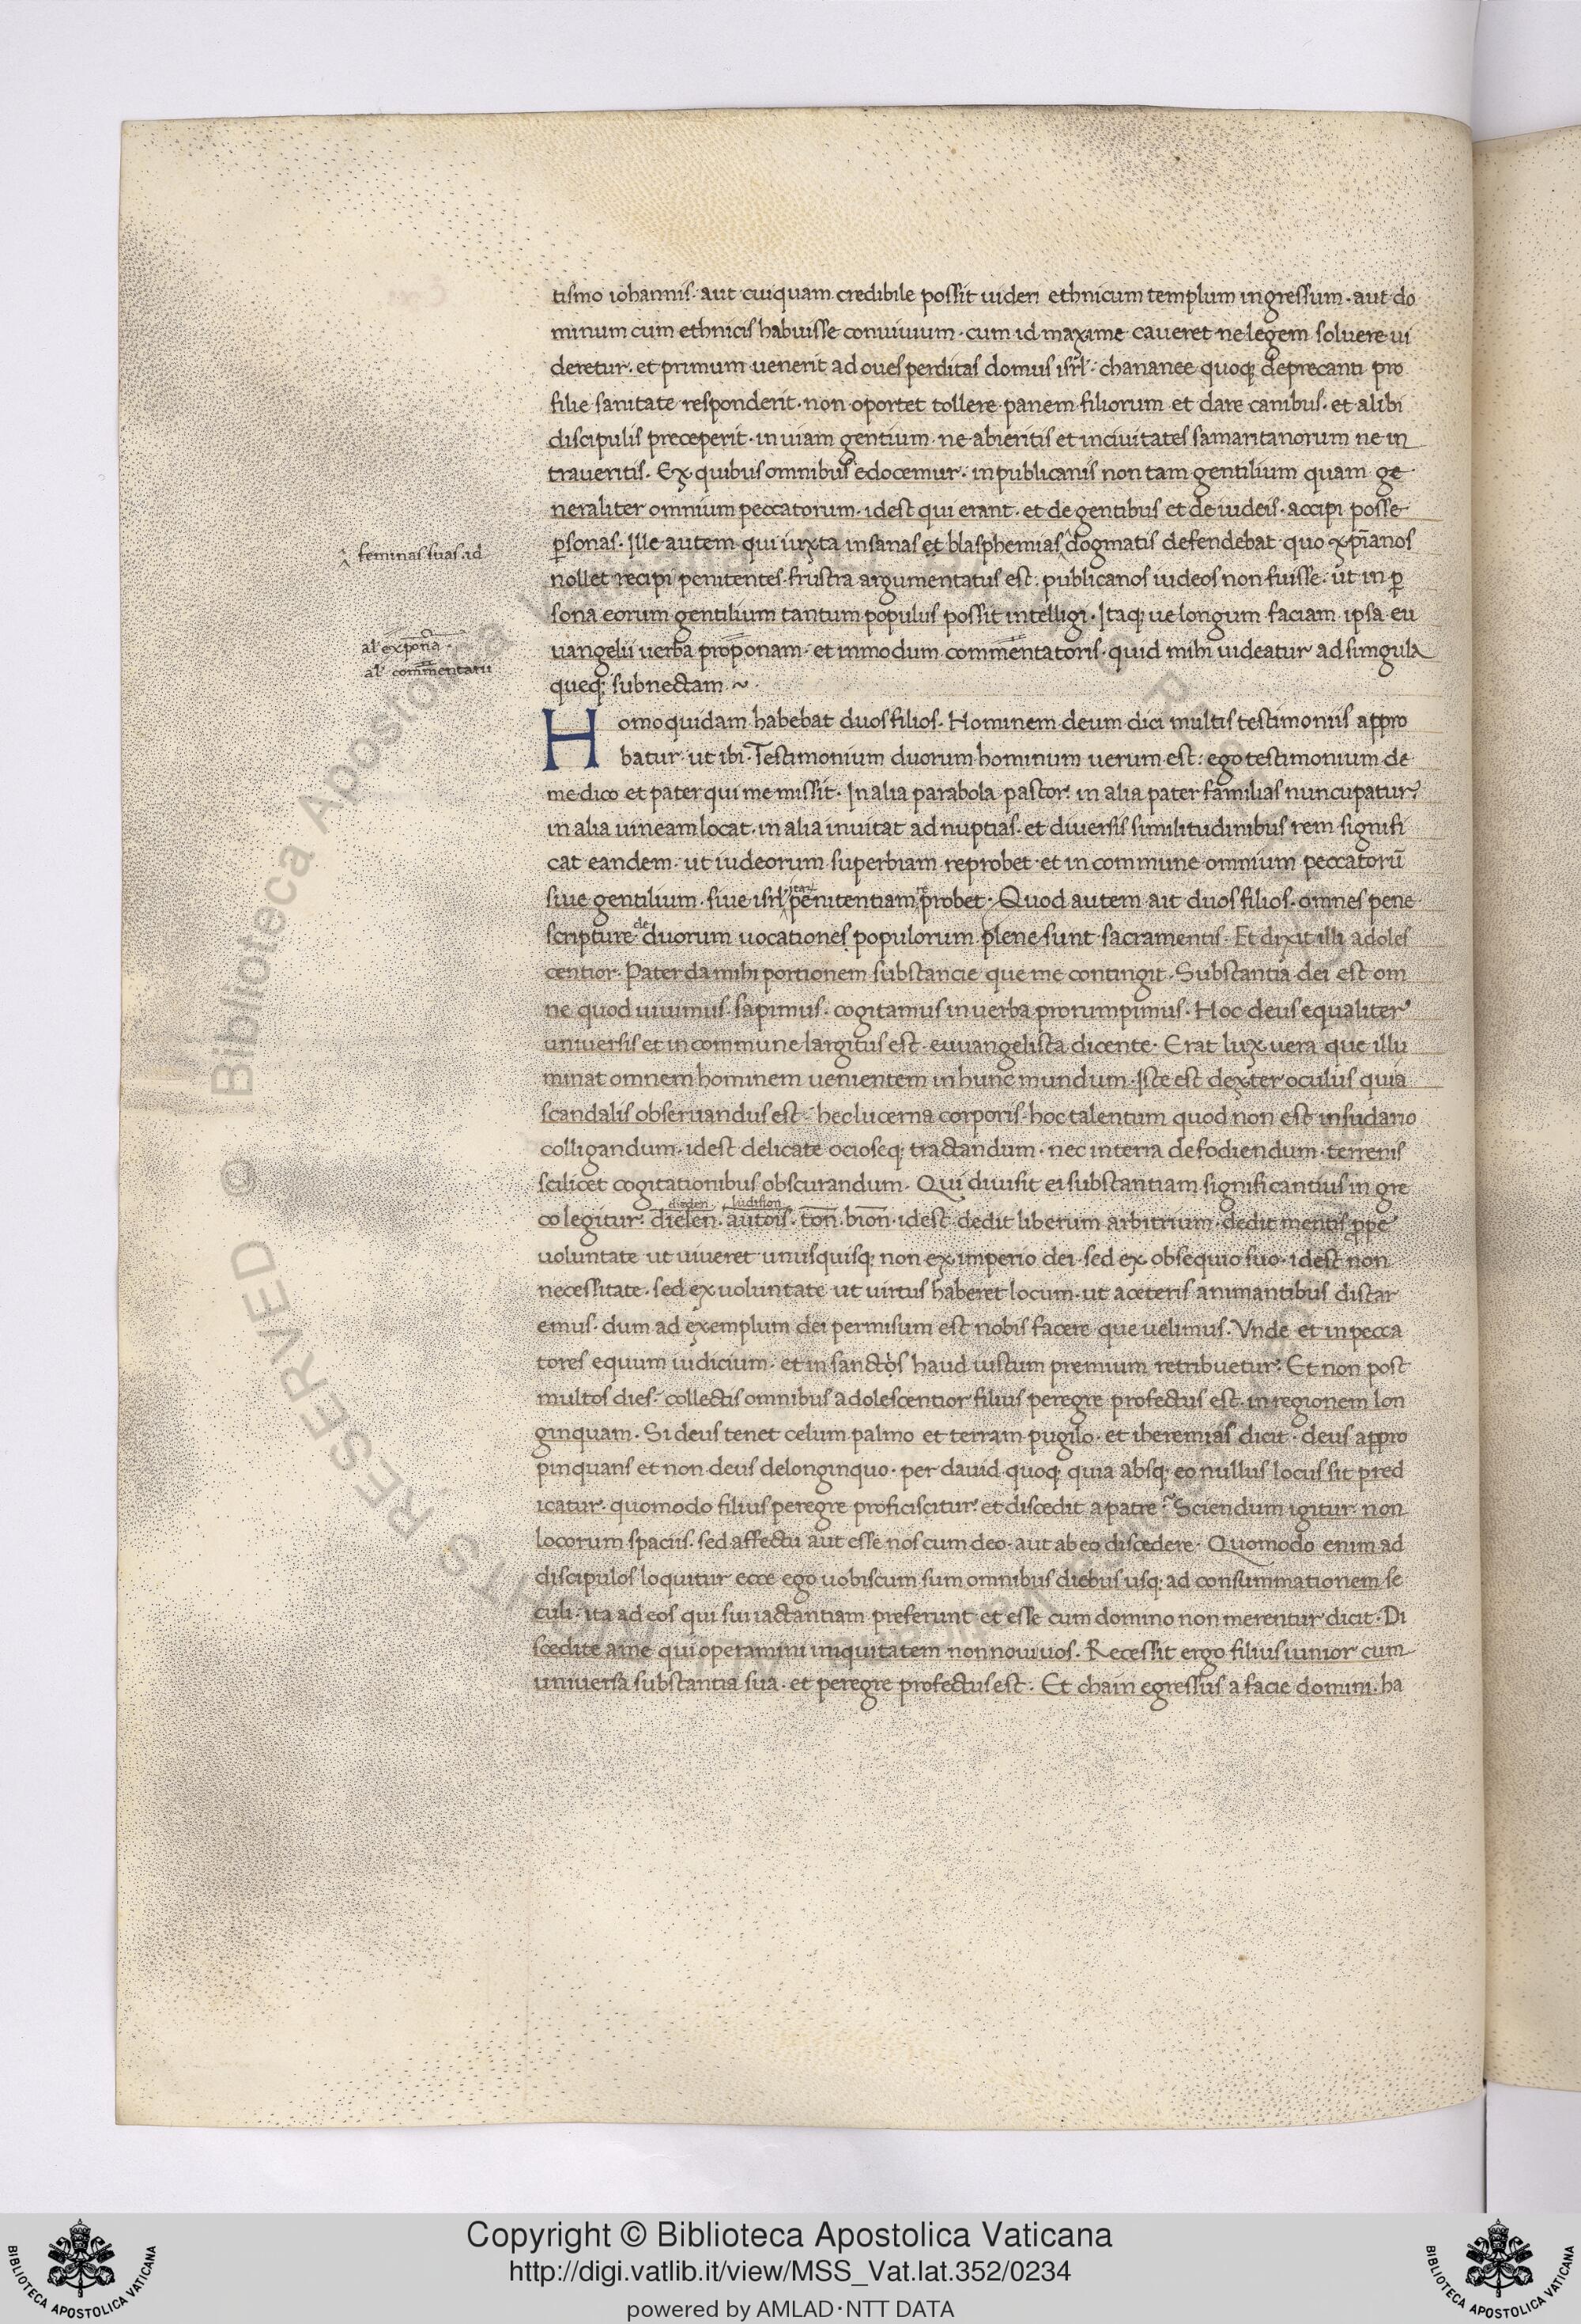 tismo iohannis. aut cuiquam credibile possit uideri ethnicum templum ingressum. aut do
minum cum ethnicis habuisse conuiuium. cum id maxime caueret ne legem soluere ui
deretur. et primum uenerit ad oues perditas domus isrl'. chananee quoq; deprecanti pro
filie sanitate responderit. non oportet tollere panem filiorum et dare canibus. et alibi
discipulis preceperit. in uiam gentium ne abieritis et in ciuitates samaritanorum ne in
traueritis. Ex quibus omnibus edocemur. in publicanis non tam gentilium quam ge
neraliter omnium peccatorum. idest qui erant. et de gentibus et de iudeis. accipi posse
feminas suas id
p̱sonas. Ille autem qui iuxta insanas et blasphemias dogmatis defendebat quo xp̄ianos
nollet recipi penitentes frustra argumentatus est. publicanos iudeos non fuisse. ut in p̱
sona eorum gentilium tantum populus possit intelligi. Itaq; ue longum faciam ipsa eu
al' exponā
uangelii uerba proponam. et in modum commentatoris. quid mihi uideatur ad singula
al' commentarii
queq; subnectam ~
Homo quidam habebat duos filios. Hominem deum dici multis testimoniis appro
batur. ut ibi. Testimonium duorum hominum uerum est: ego testimonium de
me dico et pater qui me missit. In alia parabola pastor. in alia pater familias nuncupatur.
in alia uineam locat. in alia inuitat ad nuptias. et diuersis similitudinibus rem signifi
cat eandem. ut iudeorum superbiam reprobet. et in commune omnium peccatorū
siue gentilium. siue isrl' penitentiam probet. Quod autem ait duos filios. omnes pene
de
scripture duorum uocationes populorum plene sunt sacramentis. Et dixit illi adoles
centior. Pater da mihi portionem substancie que me contingit. Substantia dei est om
ne quod uiuimus. sapimus. cogitamus in uerba prorumpimus. Hoc deus equaliter
uniuersis et in commune largitus est. euuangelista dicente. Erat lux uera que illu
minat omnem hominem uenientem in hunc mundum. Iste est dexter oculus quia
scandalis obseruandus est. hec lucerna corporis. hoc talentum quod non est in sudario
colligandum. idest delicate ocioseq; tractandum. nec in terra defodiendum. terrenis
scilicet cogitationibus obscurandum. Qui diuisit ei substantiam significantius in gre
co legitur. dielen. autois. ton. bion. idest. dedit liberum arbitrium. dedit mentis ꝓpe
uoluntate ut uiueret unusquisq; non ex imperio dei. sed ex obsequio suo. idest non
necessitate. sed ex uoluntate ut uirtus haberet locum. ut aceteris animantibus distar
emus. dum ad exemplum dei permisum est nobis facere que uelimus. Vnde et in pecca
tores equum iudicium. et in sanctos haud iustum premium retribuetur. Et non post
multos dies. collectis omnibus adolescentior filius peregre profectus est. in regionem lon
ginquam. Si deus tenet celum palmo et terram pugilo. et iheremias dicit. deus appro
pinquans et non deus delonginquo. per dauid quoq; quia absq; eo nullus locus sit pred
icatur. quomodo filius peregre proficiscitur. et discedit a patre? Sciendum igitur non
locorum spaciis. sed affectu aut esse nos cum deo. aut ab eo discedere. Quomodo enim ad
discipulos loquitur ecce ego uobiscum sum omnibus diebus usq; ad consummationem se
culi. ita ad eos qui sui iactantiam preferunt et esse cum domino non merentur dicit. Di
scedite ame qui operamini iniquitatem non noui uos. Recessit ergo filius iunior cum
uniuersa substantia sua. et peregre profectus est. Et chain egressus a facie domini. ha
Copyright © Biblioteca Apostolica Vaticana
http://digi.vatlib.it/view/MSS_Vat.lat.352/0234
powered by AMLAD·NTT DATA
BIBLIOTECA APOSTOLICA VATICANA
BIBLIOTECA APOSTOLICA VATICANA